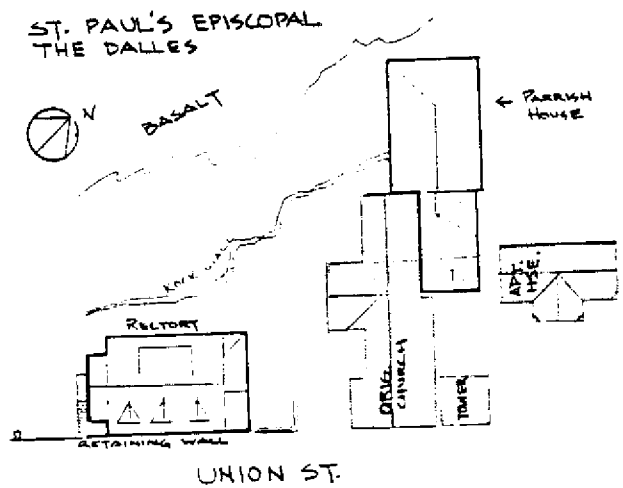 ST. PAUL'S EPISCOPAL
THE DALLES
N
BASALT
← PARRISH
HOUSE
ROCK WALL
APT.
HSE.
RECTORY
ORIG.
CHURCH
TOWER
RETAINING WALL
UNION ST.